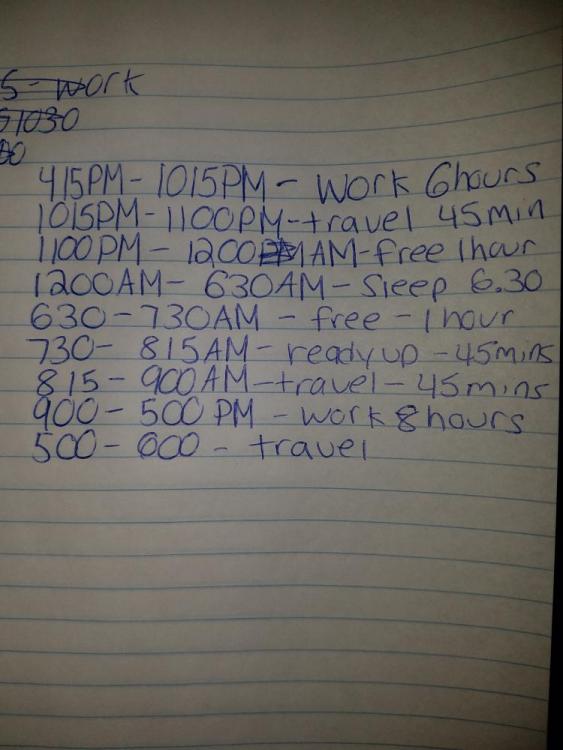 5-work
1030
00
415PM- 1015PM - work 6hours
1015PM-1100PM-travel 45min
1100PM - 1200 AM-free 1hour
1200AM- 630AM- Sleep 6.30
630-730AM - free - 1hour
730- 815AM- ready up - 45mins
815- 900AM-travel-45mins
900- 500PM - work 8hours
500- 600 - travel